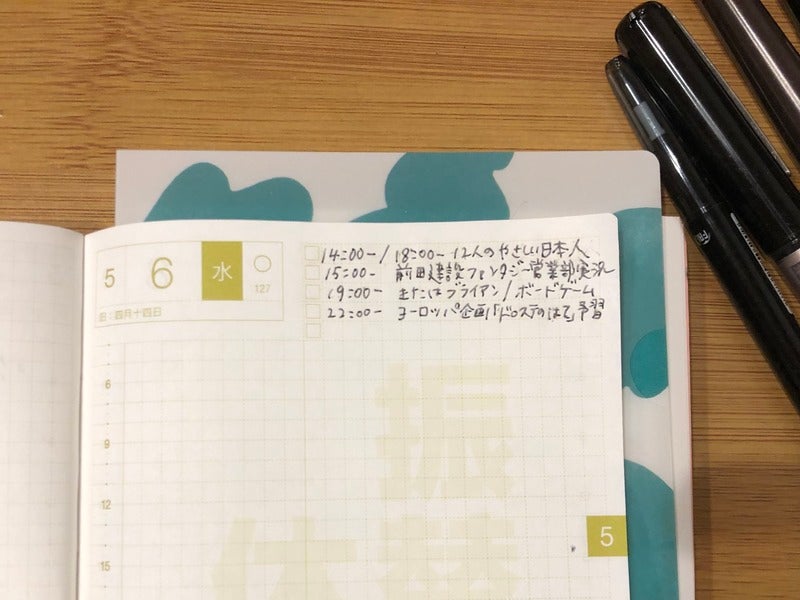 5 6 水 ○
127
旧:四月十四日
14:00-/18:00- 12人のやさしい日本人
15:00- 前田建設ファンタジー営業部実況
19:00- またはブライアン/ボードゲーム
22:00- ヨーロッパ企画「ドロステのはて」予習
6
9
12
15
振替
休
5